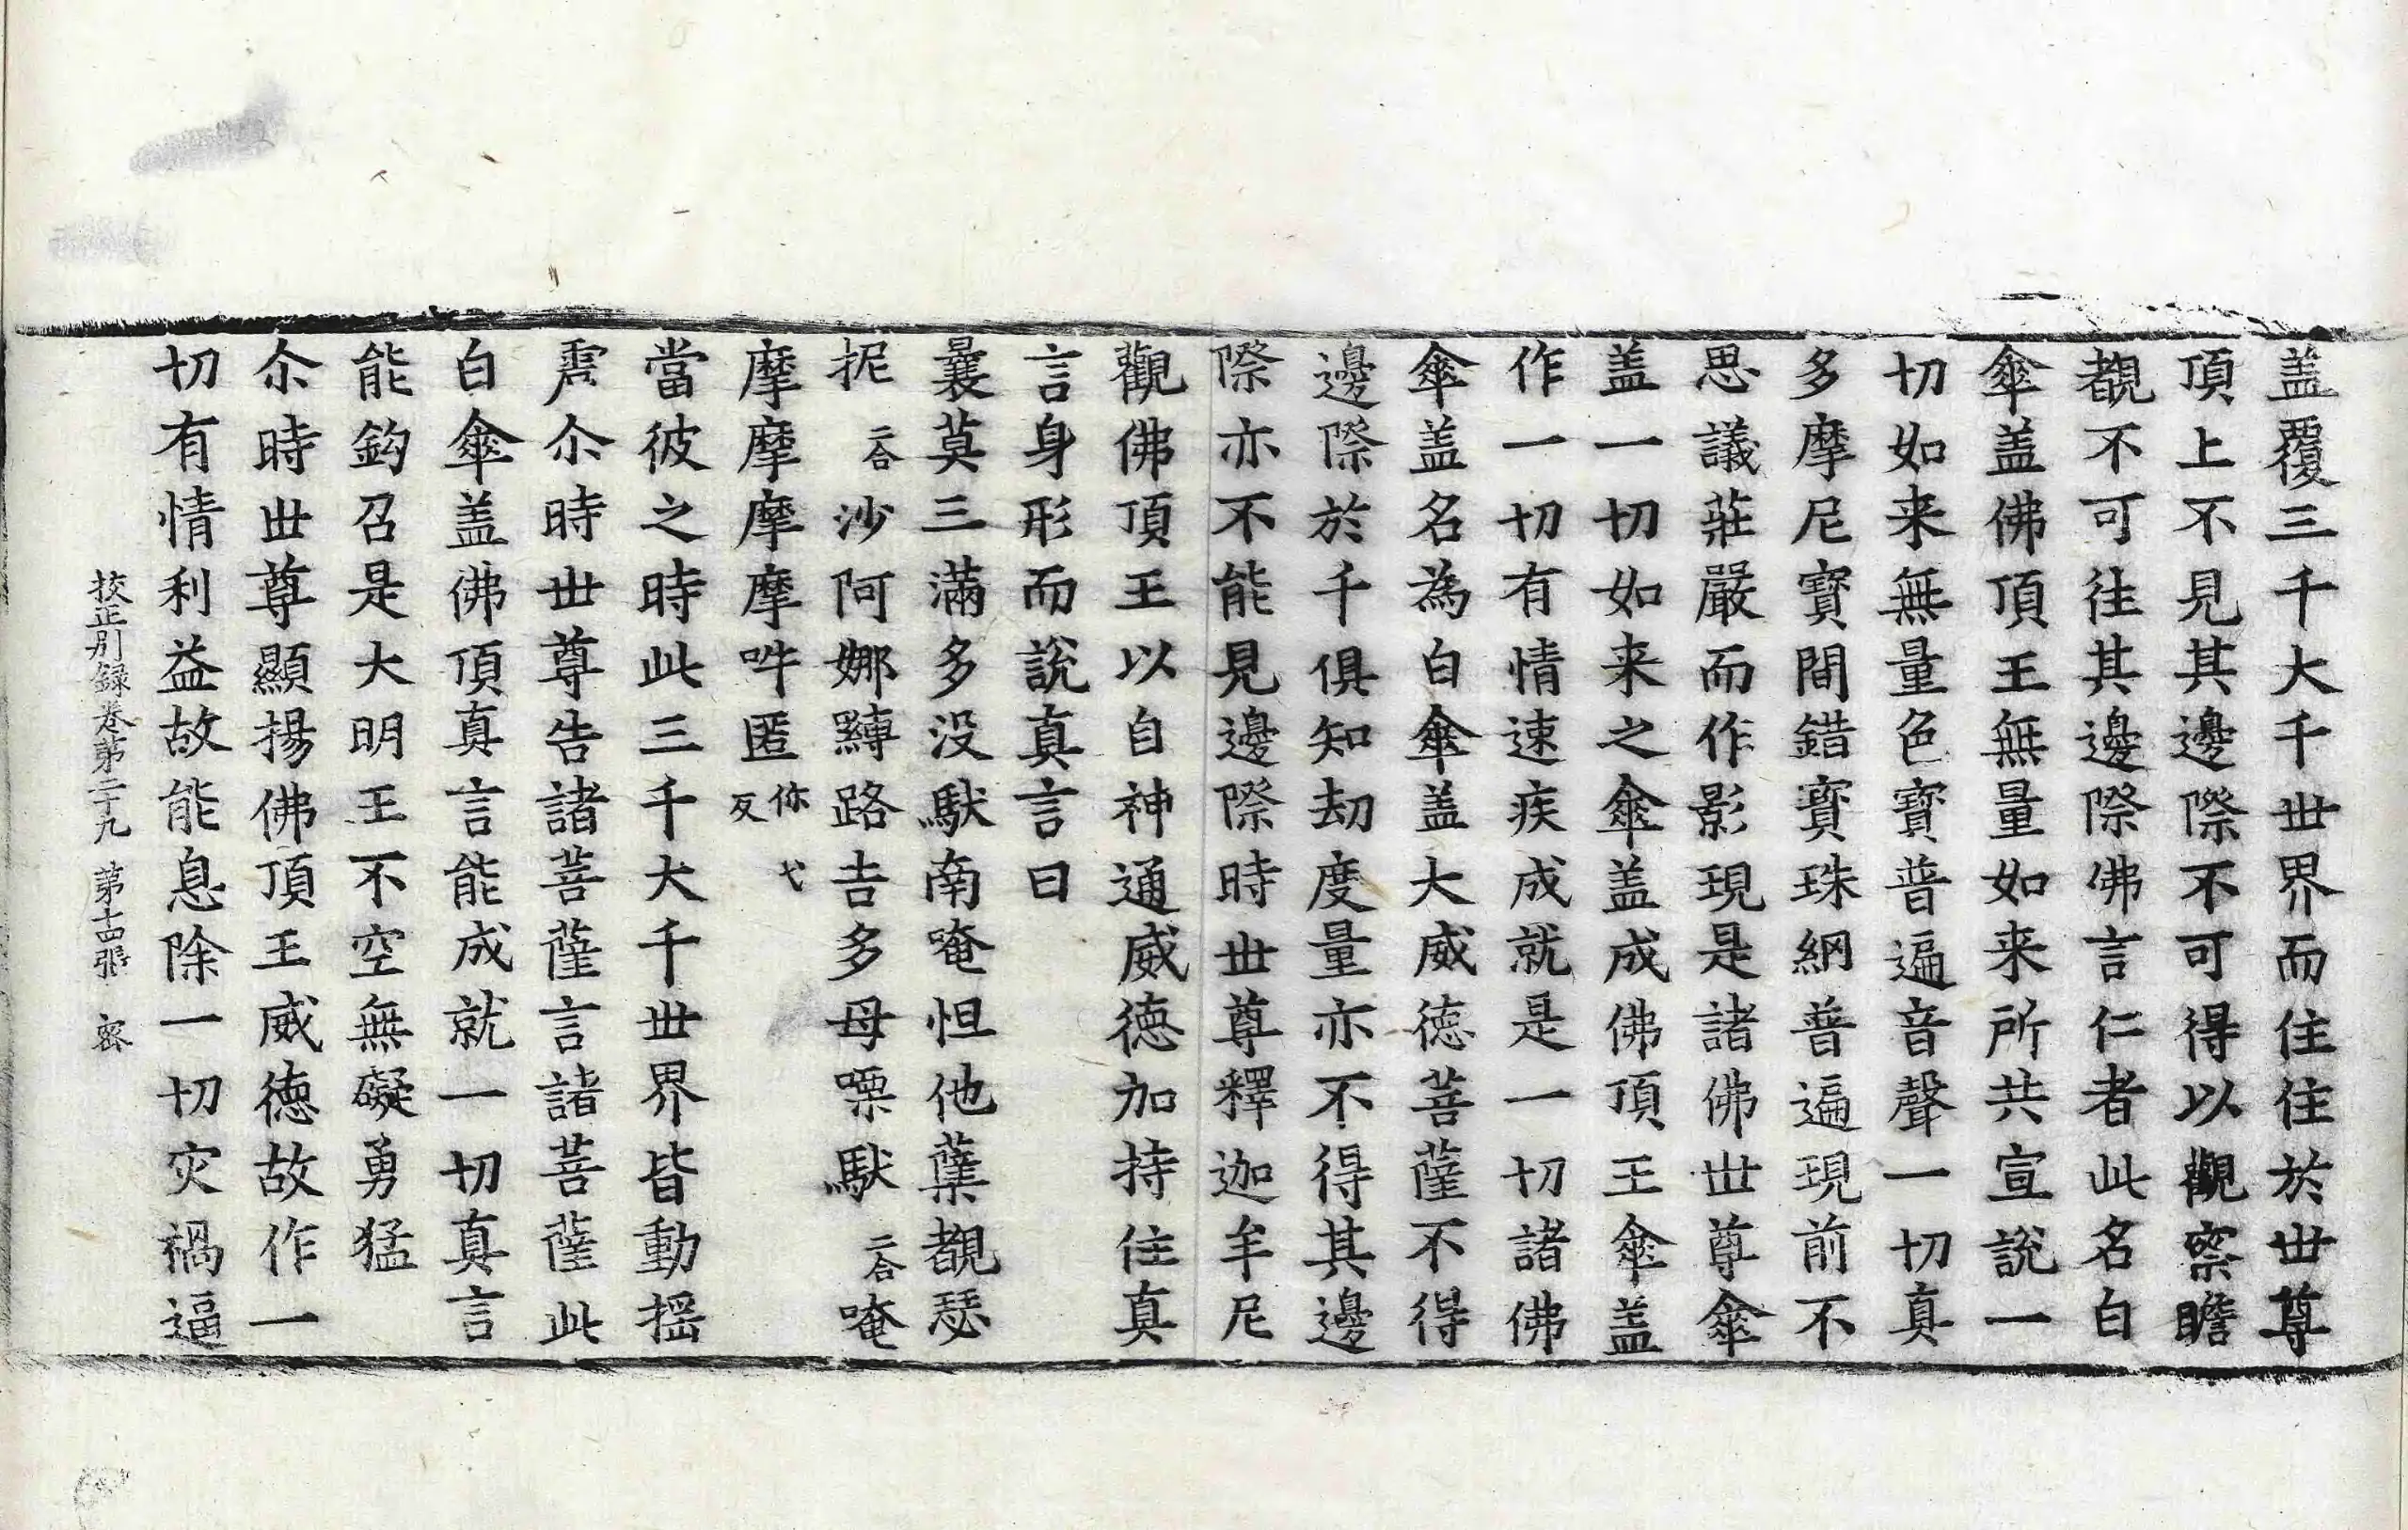 盖覆三千大千世界而住住於世尊
頂上不見其邊際不可得以觀察瞻
覩不可往其邊際佛言仁者此名白
傘盖佛頂王無量如来所共宣說一
切如来無量色寶普遍音聲一切真
多摩尼寶間錯寶珠網普遍現前不
思議莊嚴而作影現是諸佛世尊傘
盖一切如来之傘盖成佛頂王傘盖
作一切有情速疾成就是一切諸佛
傘盖名為白傘盖大威德菩薩不得
邊際於千俱知劫度量亦不得其邊
際亦不能見邊際時世尊釋迦牟尼
觀佛頂王以自神通威德加持住真
言身形而說真言曰
曩莫三滿多没䭾南唵怛他蘖覩瑟
抳二合沙阿娜嚩路吉多母㗚䭾二合唵
摩摩摩摩吽匿你弋反
當彼之時此三千大千世界皆動揺
震尒時世尊告諸菩薩言諸菩薩此
白傘盖佛頂真言能成就一切真言
能鈎召是大明王不空無礙勇猛
尒時世尊顯揚佛頂王威德故作一
切有情利益故能息除一切灾禍逼
挍正別録卷第二十九 第十四張 密